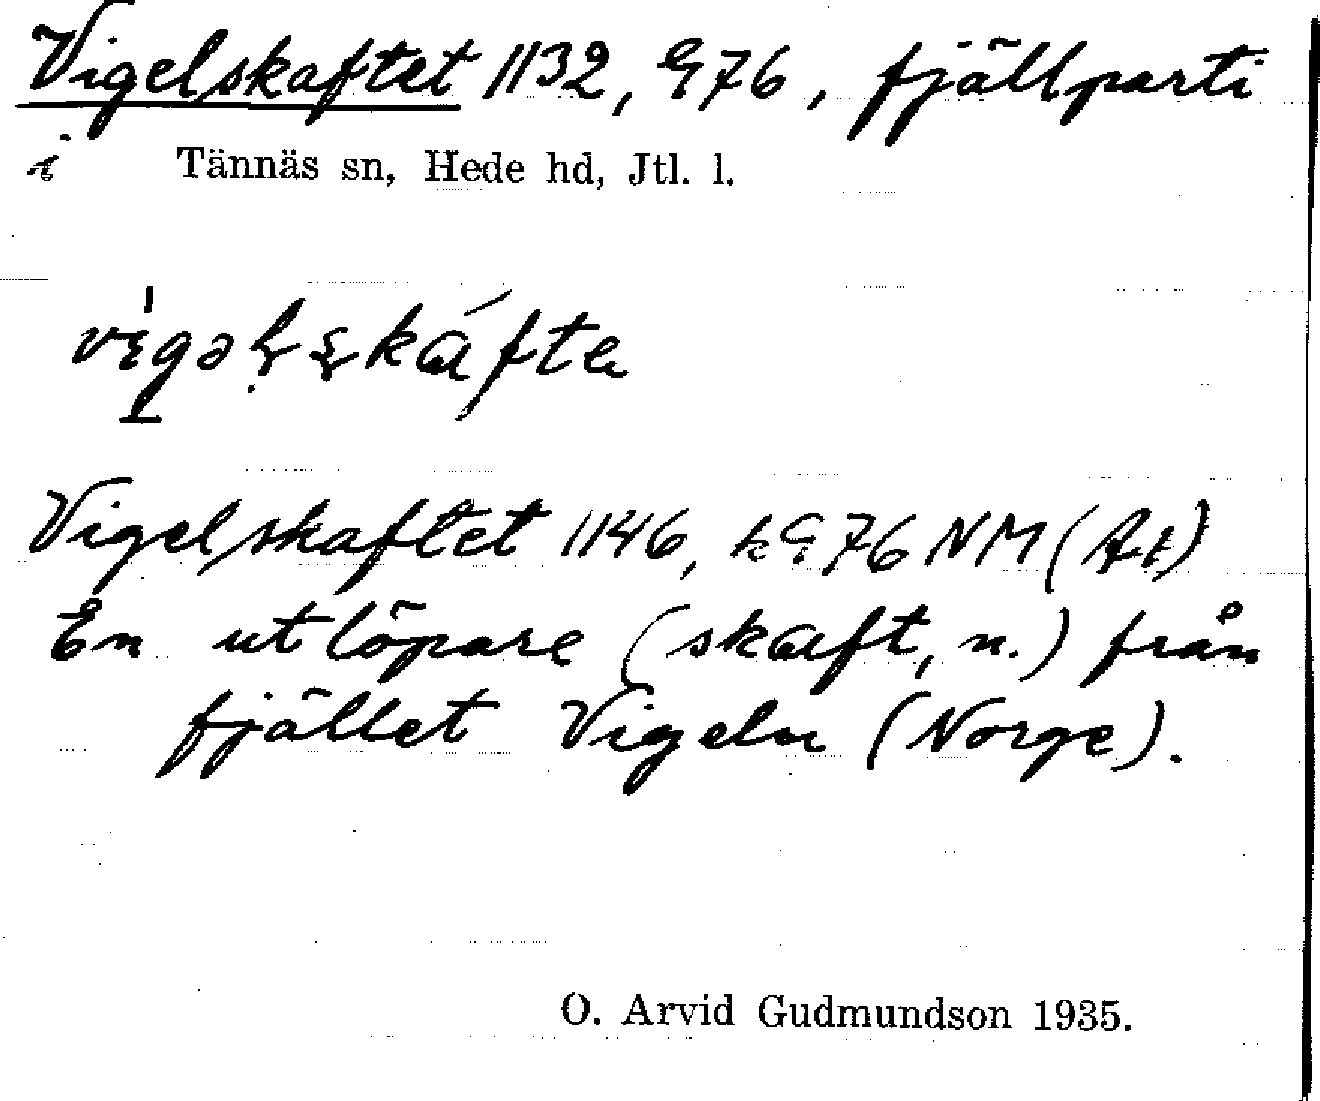 Vigelskaftet 1132, G76, fjällparti
i Tännäs sn, Hede hd, Jtl. l.
Vigelskaftet 1146, k G 76 NM (Ak)
En utlöpare (skaft, n.) från
fjället Vigeln (Norge).
O. Arvid Gudmundson 1935.